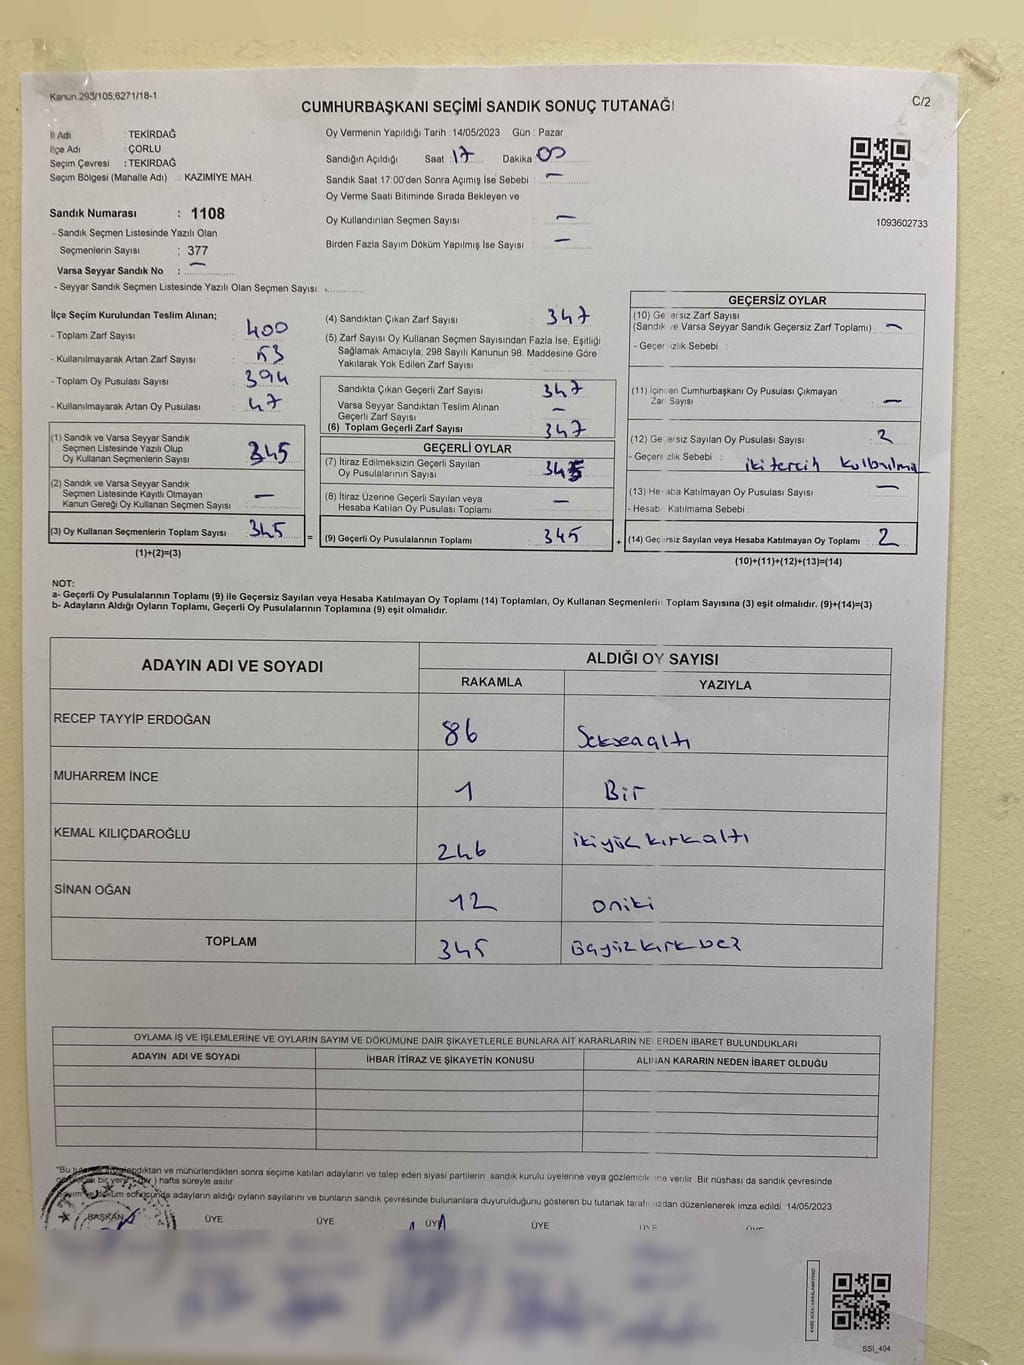 Kanun 293/105,6271/18-1
CUMHURBAŞKANI SEÇİMİ SANDIK SONUÇ TUTANAĞI
C/2
İl Adı : TEKİRDAĞ
İlçe Adı : ÇORLU
Seçim Çevresi : TEKİRDAĞ
Seçim Bölgesi (Mahalle Adı) : KAZIMİYE MAH.
Sandık Numarası : 1108
- Sandık Seçmen Listesinde Yazılı Olan
Seçmenlerin Sayısı : 377
Varsa Seyyar Sandık No : —
- Seyyar Sandık Seçmen Listesinde Yazılı Olan Seçmen Sayısı:
Oy Vermenin Yapıldığı Tarih : 14/05/2023 Gün : Pazar
Sandığın Açıldığı Saat 17 Dakika 00
Sandık Saat 17:00'den Sonra Açımış İse Sebebi : —
Oy Verme Saati Bitiminde Sırada Bekleyen ve
Oy Kullandırılan Seçmen Sayısı : —
Birden Fazla Sayım Döküm Yapılmış İse Sayısı : —
1093602733
İlçe Seçim Kurulundan Teslim Alınan;
- Toplam Zarf Sayısı : 400
- Kullanılmayarak Artan Zarf Sayısı : 53
- Toplam Oy Pusulası Sayısı : 394
- Kullanılmayarak Artan Oy Pusulası : 47
(1) Sandık ve Varsa Seyyar Sandık
Seçmen Listesinde Yazılı Olup
Oy Kullanan Seçmenlerin Sayısı : 345
(2) Sandık ve Varsa Seyyar Sandık
Seçmen Listesinde Kayıtlı Olmayan
Kanun Gereği Oy Kullanan Seçmen Sayısı : —
(3) Oy Kullanan Seçmenlerin Toplam Sayısı : 345
(1)+(2)=(3)
=
(4) Sandıktan Çıkan Zarf Sayısı : 347
(5) Zarf Sayısı Oy Kullanan Seçmen Sayısından Fazla İse, Eşitliği
Sağlamak Amacıyla, 298 Sayılı Kanunun 98. Maddesine Göre
Yakılarak Yok Edilen Zarf Sayısı :
Sandıkta Çıkan Geçerli Zarf Sayısı : 347
Varsa Seyyar Sandıktan Teslim Alınan
Geçerli Zarf Sayısı : —
(6) Toplam Geçerli Zarf Sayısı : 347
GEÇERLİ OYLAR
(7) İtiraz Edilmeksizin Geçerli Sayılan
Oy Pusulalarının Sayısı : 345
(8) İtiraz Üzerine Geçerli Sayılan veya
Hesaba Katılan Oy Pusulası Toplamı : —
(9) Geçerli Oy Pusulalarının Toplamı : 345
+
GEÇERSİZ OYLAR
(10) Geçersiz Zarf Sayısı
(Sandık ve Varsa Seyyar Sandık Geçersiz Zarf Toplamı) : —
- Geçersizlik Sebebi :
(11) İçinden Cumhurbaşkanı Oy Pusulası Çıkmayan
Zarf Sayısı : —
(12) Geçersiz Sayılan Oy Pusulası Sayısı : 2
- Geçersizlik Sebebi : iki tercih
(13) Hesaba Katılmayan Oy Pusulası Sayısı : —
- Hesaba Katılmama Sebebi :
(14) Geçersiz Sayılan veya Hesaba Katılmayan Oy Toplamı : 2
(10)+(11)+(12)+(13)=(14)
NOT:
a- Geçerli Oy Pusulalarının Toplamı (9) ile Geçersiz Sayılan veya Hesaba Katılmayan Oy Toplamı (14) Toplamları, Oy Kullanan Seçmenlerin Toplam Sayısına (3) eşit olmalıdır. (9)+(14)=(3)
b- Adayların Aldığı Oyların Toplamı, Geçerli Oy Pusulalarının Toplamına (9) eşit olmalıdır.
ADAYIN ADI VE SOYADI
ALDIĞI OY SAYISI
RAKAMLA YAZIYLA
RECEP TAYYİP ERDOĞAN 86 Seksenaltı
MUHARREM İNCE 1 Bir
KEMAL KILIÇDAROĞLU 246 ikiyüzkırkaltı
SİNAN OĞAN 12 oniki
TOPLAM 345
OYLAMA İŞ VE İŞLEMLERİNE VE OYLARIN SAYIM VE DÖKÜMÜNE DAİR ŞİKAYETLERLE BUNLARA AİT KARARLARIN NELERDEN İBARET BULUNDUKLARI
ADAYIN ADI VE SOYADI İHBAR İTİRAZ VE ŞİKAYETİN KONUSU ALINAN KARARIN NEDEN İBARET OLDUĞU
"Bu ve mühürlendikten sonra seçime katılan adayların ve talep eden siyasi partilerin sandık kurulu üyelerine veya gözlemcilerine verilir. Bir nüshası da sandık çevresinde
hafta süreyle asılır.
adayların aldığı oyların sayılarını ve bunların sandık çevresinde bulunanlara duyurulduğunu gösteren bu tutanak tarafımızdan düzenlenerek imza edildi. 14/05/2023
BAŞKAN ÜYE ÜYE ÜYE ÜYE ÜYE ÜYE
T.C.
SSI_404